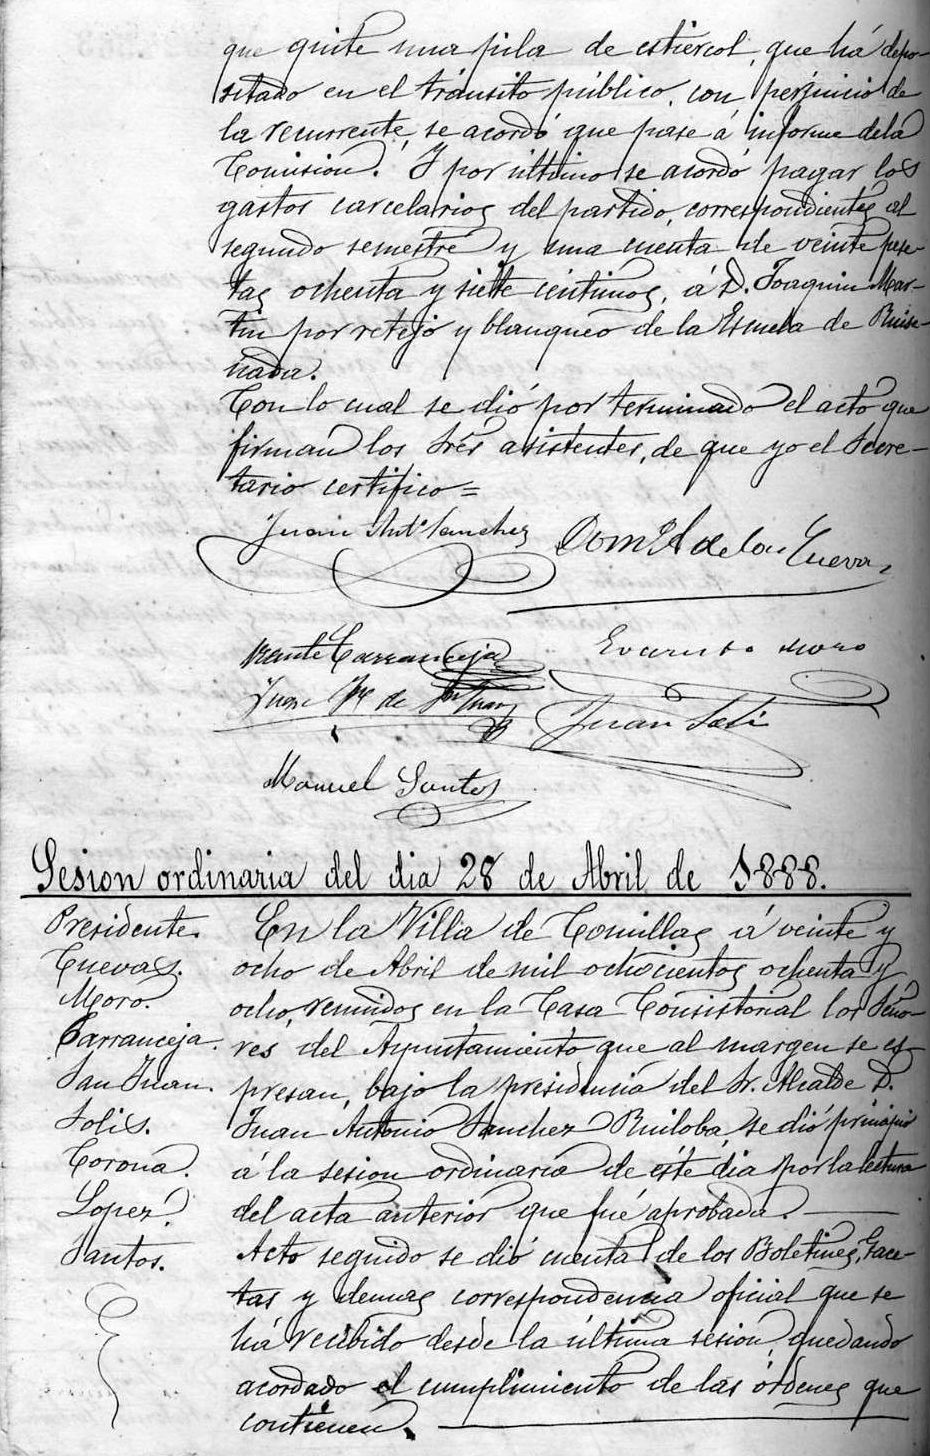 que quite una pila de estiercol, que há depo-
sitado en el tránsito público, con perjuicio de
la recurrente, se acordó que pase á informe de la
Comision. Y por último se acordó pagar los
gastos carcelarios del partido, correspondientes al
segundo semestre y una cuenta de veinte pese-
tas ochenta y siete centimos, á D. Joaquin Mar-
tin por retejo y blanqueo de la Escuela de Ruise-
ñada.
Con lo cual se dió por terminado el acto que
firman los Srés asistentes, de que yo el Secre-
tario certifico=
Juan Antº Sanchez
Domº de las Cuevas
Vicente Carranceja
Evaristo Moro
Juan de San Juan
Juan Solis
Manuel Santos
Sesion ordinaria del dia 28 de Abril de 1888.
Presidente.
Cuevas.
Moro.
Carranceja.
San Juan.
Solis.
Corona.
Lopez.
Santos.
En la Villa de Comillas á veinte y
ocho de Abril de mil ochocientos ochenta y
ocho, reunidos en la Casa Consistorial los Seño-
res del Ayuntamiento que al margen se es-
presan, bajo la presidencia del Sr. Alcalde D.
Juan Antonio Sanchez Ruiloba, se dió principio
á la sesion ordinaria de éste dia por la lectura
del acta anterior que fué aprobada.
Acto seguido se dió cuenta de los Boletines, Gace-
tas y demas correspondencia oficial que se
há recibido desde la última sesion, quedando
acordado el cumplimiento de las órdenes que
contienen.